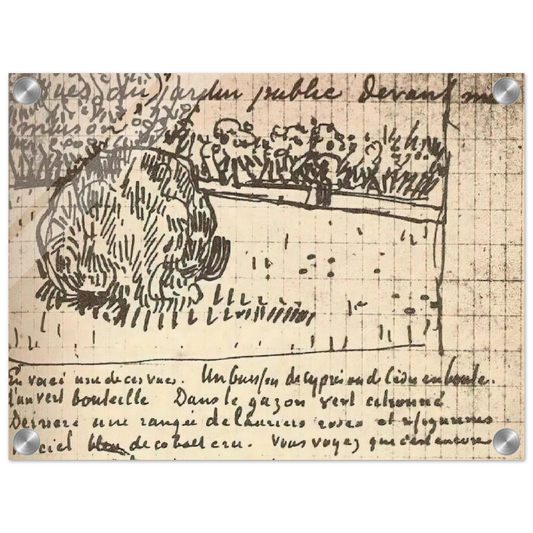 vues du jardin public devant ma
maison
En voici une de ces vues. Un buisson de cyprès ou de cèdre en boule.
d'un vert bouteille Dans le gazon vert citronné
Derrière une rangée de lauriers roses et
ciel bleu de cobalt cru. Vous voyez que c'est encore